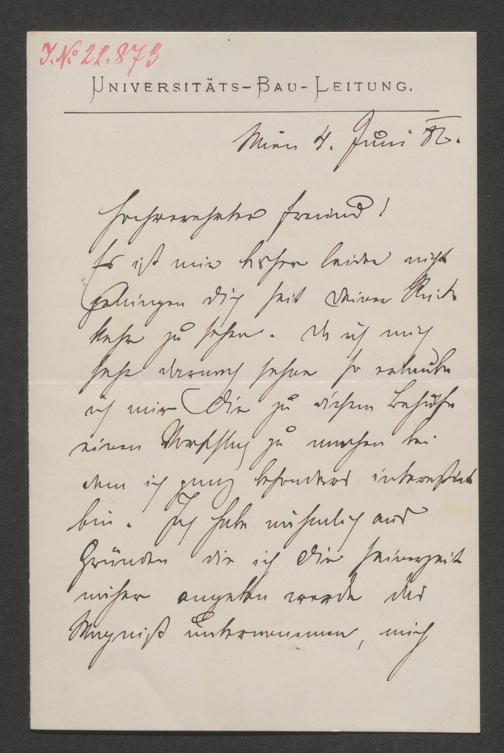 J.N° 22.873
UNIVERSITÄTS-BAU-LEITUNG.
Wien 4. Juni 82.
Hochverehrter Freund!
Es ist mir bisher leider nicht
gelungen Dich seit Deiner Rück
kehr zu sehen. Da ich mich
sehr darnach sehne so erlaube
ich mir Dir zu diesem Behufe
einen Vorschlag zu machen bei
dem ich ganz besonders interessirt
bin. Ich habe nähmlich aus
Gründen die ich Dir seinerzeit
näher angeben werde das
Wagniß unternommen, mich